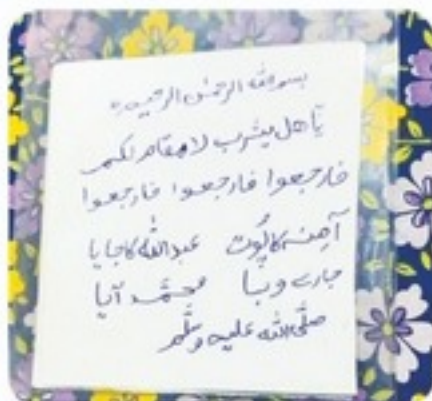 بسم الله الرحمٰن الرحیم
یَا ھل یثرب لا مقام لکم
فارجعوا فارجعوا فارجعوا
آمِنہ کا پُوت عبداللہ کا جایا
جارے وبا محمّد آیا
صلّی اللہ علیہ وسلّم